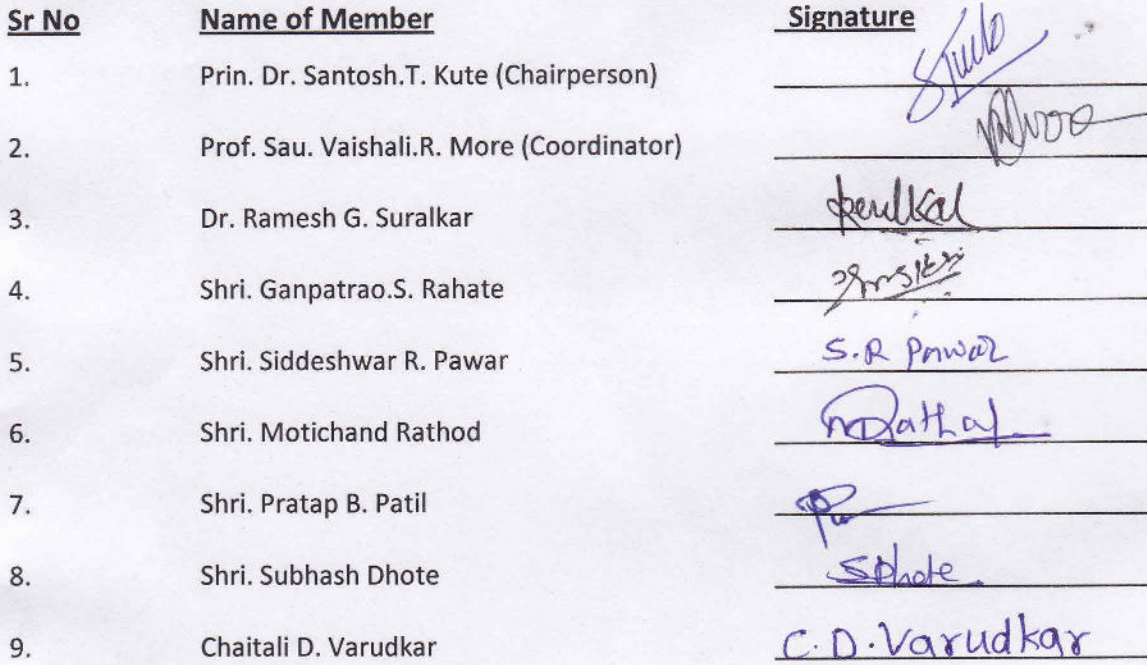 Sr No Name of Member Signature
1. Prin. Dr. Santosh.T. Kute (Chairperson)
2. Prof. Sau. Vaishali.R. More (Coordinator)
3. Dr. Ramesh G. Suralkar
4. Shri. Ganpatrao.S. Rahate
5. Shri. Siddeshwar R. Pawar S.R Pawar
6. Shri. Motichand Rathod
7. Shri. Pratap B. Patil
8. Shri. Subhash Dhote SDhote
9. Chaitali D. Varudkar C.D.Varudkar